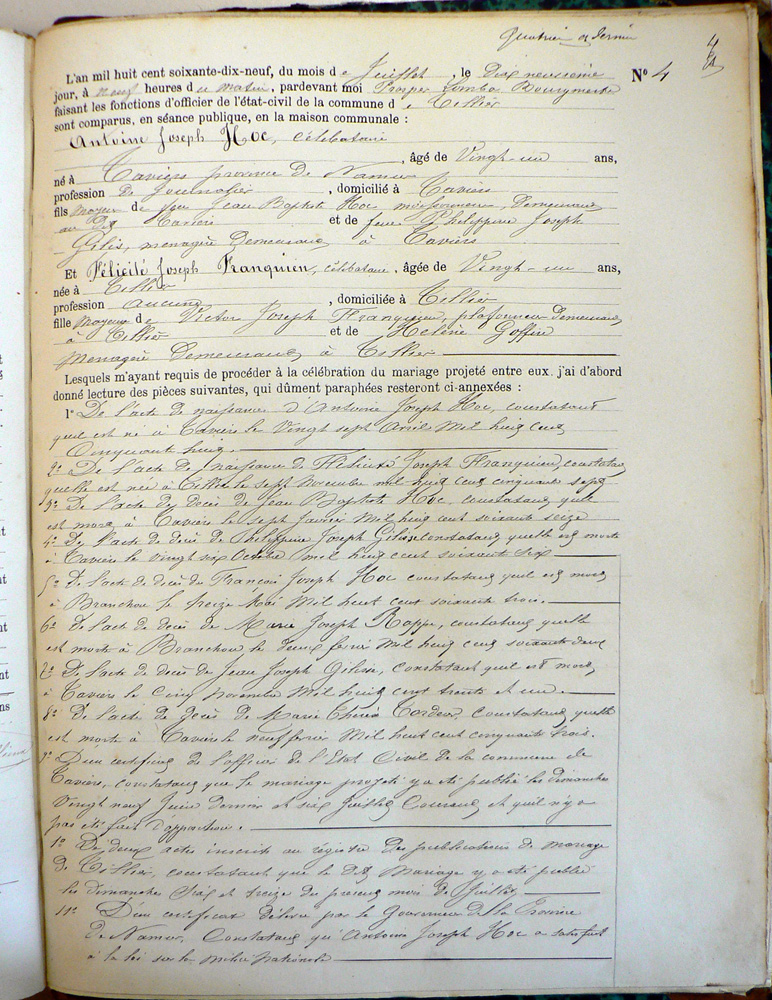 Quatrième et dernier
4
N° 4
L'an mil huit cent soixante-dix-neuf, du mois de Juillet, le Dix neuvième
jour, à neuf heures du matin, pardevant moi Prosper Bourgmestre
faisant les fonctions d'officier de l'état-civil de la commune de Tillier
sont comparus, en séance publique, en la maison communale :
Antoine Joseph Hoc, célibataire
, âgé de Vingt-un ans,
né à Taviers province de Namur
profession de Journalier, domicilié à Taviers
fils majeur de feu Jean Baptiste Hoc moissonneur, Demeurant
au dit Taviers et de feue Philippine Joseph
Gilis, menagère Demeurant à Taviers
Et Félicité Joseph Franquien, célibataire, âgée de Vingt-un ans,
née à Tillier
profession aucune, domiciliée à Tillier
fille Majeure de Victor Joseph Franquien, plafonneur Demeurant
à Tillier et de Hélène Goffin
Menagère Demeurant à Tillier
Lesquels m'ayant requis de procéder à la célébration du mariage projeté entre eux, j'ai d'abord
donné lecture des pièces suivantes, qui dûment paraphées resteront ci-annexées :
1° De l'acte de naissance d'Antoine Joseph Hoc, constatant
qu'il est né à Taviers le Vingt sept Avril Mil huit cent
Cinquante huit.
2° De l'acte de naissance de Félicité Joseph Franquien, constatant
qu'elle est née à Tillier le sept Novembre mil huit cent cinquante sept
3° De l'acte de décès de Jean Baptiste Hoc, constatant qu'il
est mort à Taviers le sept Janvier Mil huit cent soixante seize
4° De l'acte de décès de Philippine Joseph Gilis constatant qu'elle est morte
à Taviers le vingt six Octobre mil huit cent soixante six
5° De l'acte de décès de François Joseph Hoc constatant qu'il est mort
à Branchon le treize Mai Mil huit cent soixante trois.
6° De l'acte de décès de Marie Joseph Rappe, constatant qu'elle
est morte à Branchon le deux février Mil huit cent soixante deux
7° De l'acte de décès de Jean Joseph Gilisse, constatant qu'il est mort
à Taviers le Cinq Novembre Mil huit cent trente et un.
8° De l'acte de décès de Marie Thérèse Tordeur, constatant qu'elle
est morte à Taviers le neuf février Mil huit cent cinquante trois.
9° D'un certificat de l'officier de l'Etat Civil de la commune de
Taviers, constatant que le mariage projeté y a été publié les dimanches
Vingt neuf Juin Dernier et six Juillet Courant et qu'il n'y a
pas été fait d'opposition.
1° De deux actes inscrits au régistre des publications de mariage
de Tillier, constatant que le dit Mariage y a été publié
les dimanches Six et treize du présent mois de Juillet
11° D'un certificat délivré par le Gouverneur de la Province
de Namur, Constatant qu'Antoine Joseph Hoc a satisfait
à la loi sur la milice Nationale